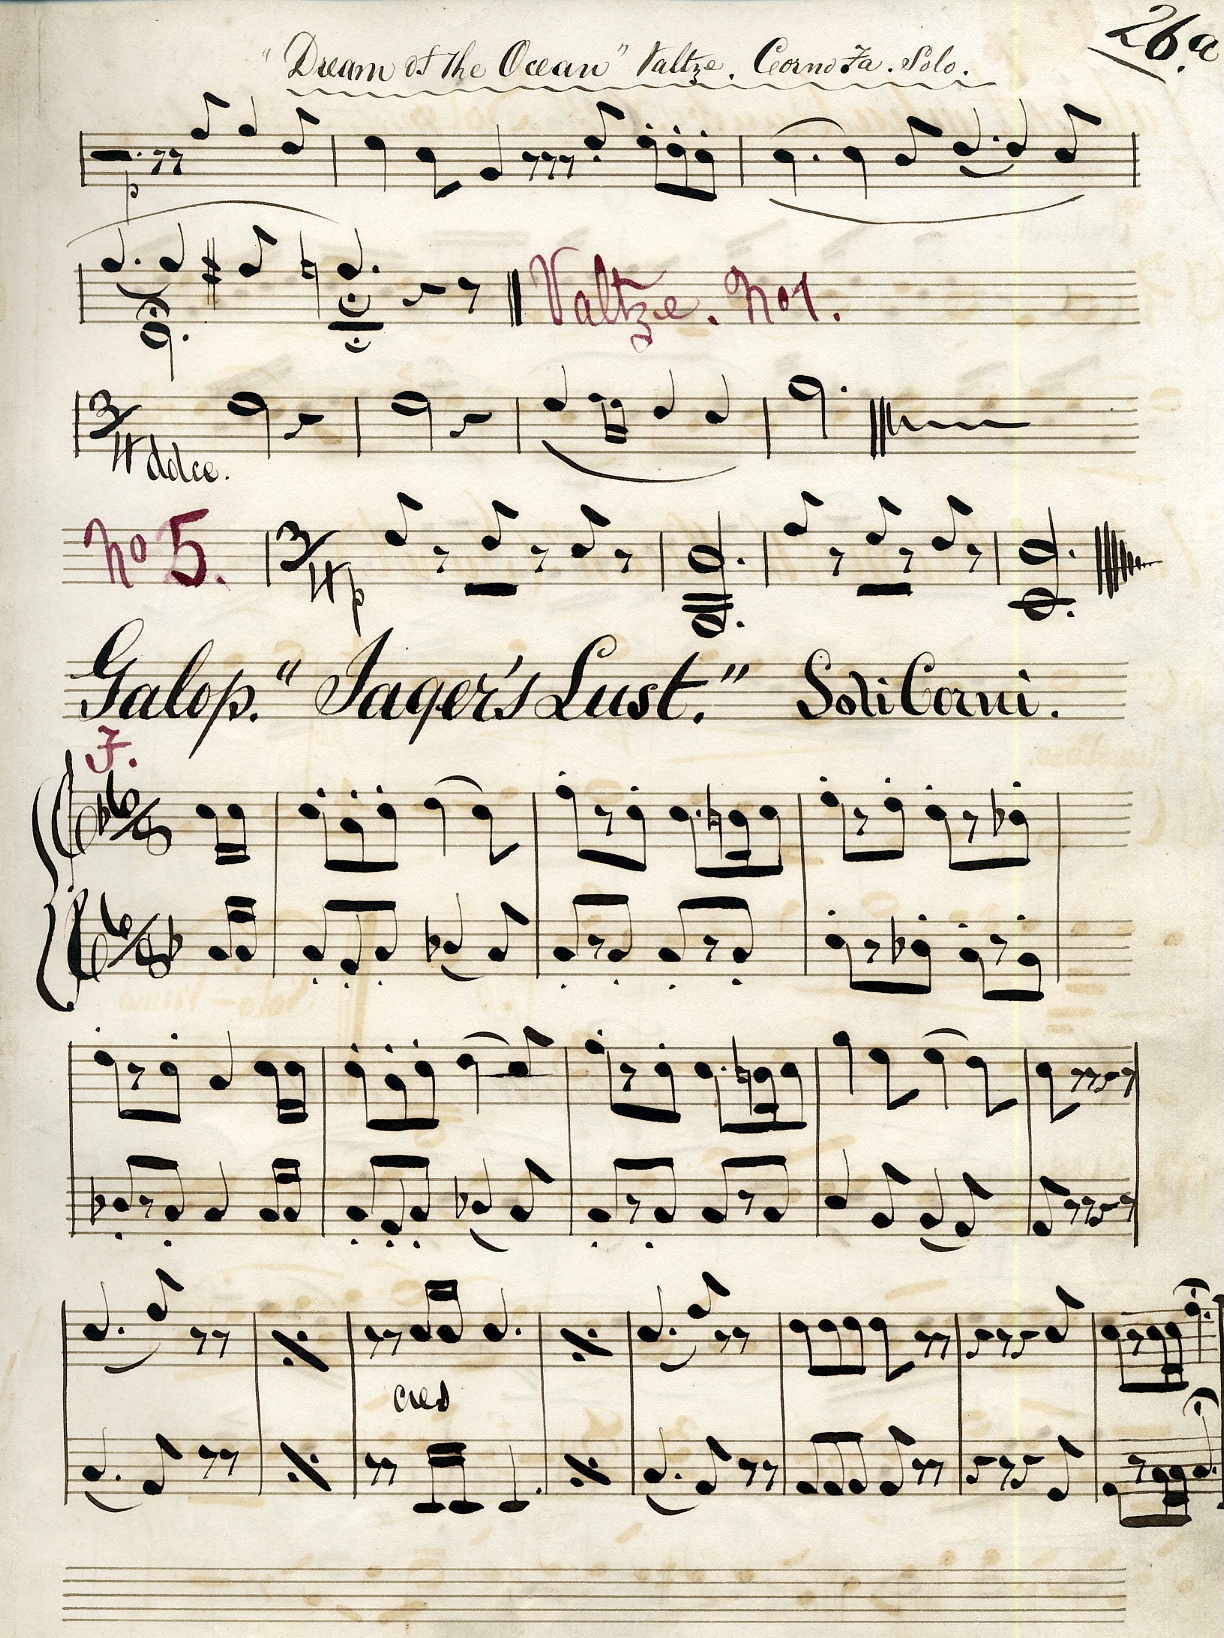 26.a
"Dream of the Ocean" Valtze. Corno Fa. Solo.
p
Valtze. No 1.
3/4 dolce.
No 5. 3/4 p
Galop. "Jager's Lust." Soli Corni.
F.
6/8
6/8
cres